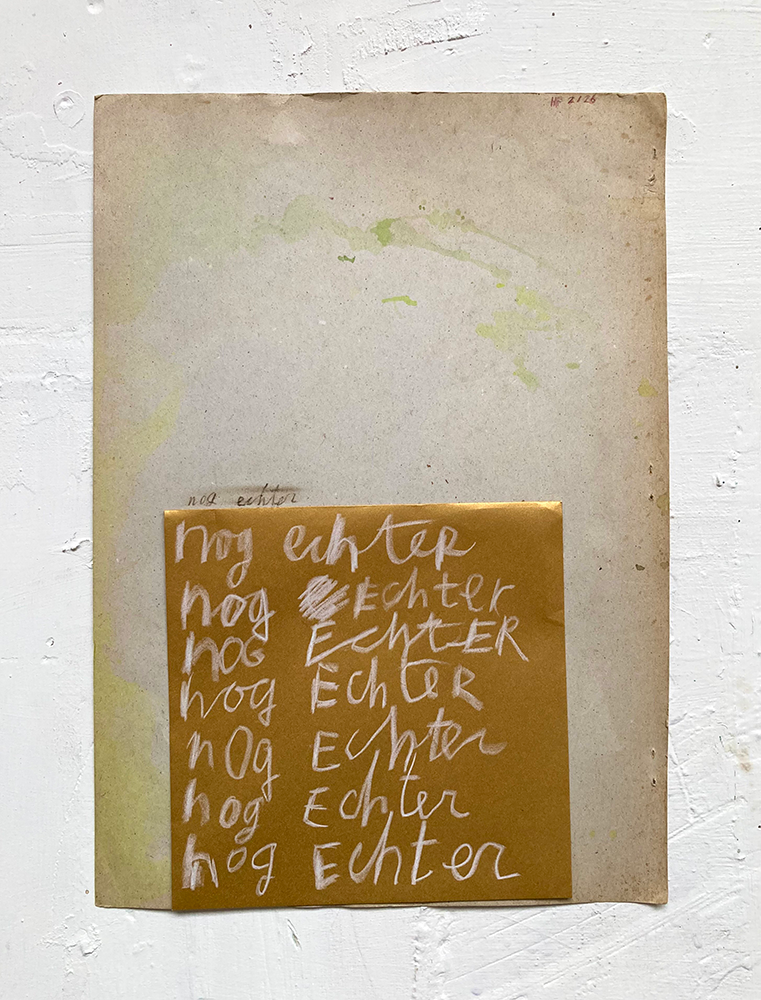 HP 2126
nog echter
nog echter
nog Echter
noG EchtER
nog EchtER
nOg Echter
hog Echter
hog Echter